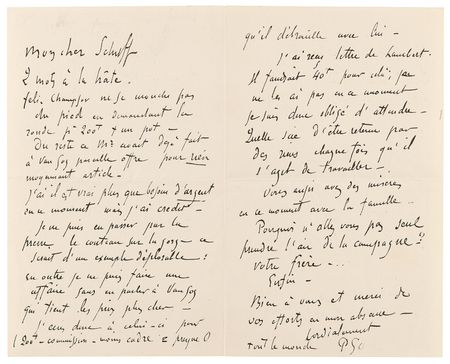 Mon cher Schuff
2 mots à la hâte.
Feli Champsor ne se mouche pas
du pied en demandant la
ronde pr 200f + un pot —
Du reste ce Mr avait déjà fait
à Van Gog pareille offre pour rien
moyennant article —
J'ai il est vrai plus que besoin d'argent
en ce moment mais j'ai crédit —
Je ne puis en passer par la
le couteau sur la gorge — ce
serait d'un exemple déplorable :
En outre je ne puis faire une
affaire sans en parler à Van Gog
qui tient les prix plus cher —
J'écris donc à celui-ci pour
(200f — commission — moins cadre
qu'il débrouille avec lui —
J'ai reçu lettre de Laubert.
Il faudrait 40f pour cela ; je
ne les ai pas en ce moment
je suis donc obligé d'attendre —
Quelle scie d'être retenu par
des sous chaque fois qu'il
s'agit de travailler —
Vous aussi avez des misères
en ce moment avec la famille —
Pourquoi n'allez vous pas seul
prendre l'air de la campagne ?
Votre frère — ..
Enfin —
Bien à vous et merci de
vos efforts en mon absence —
Cordialement
tout le monde PGo